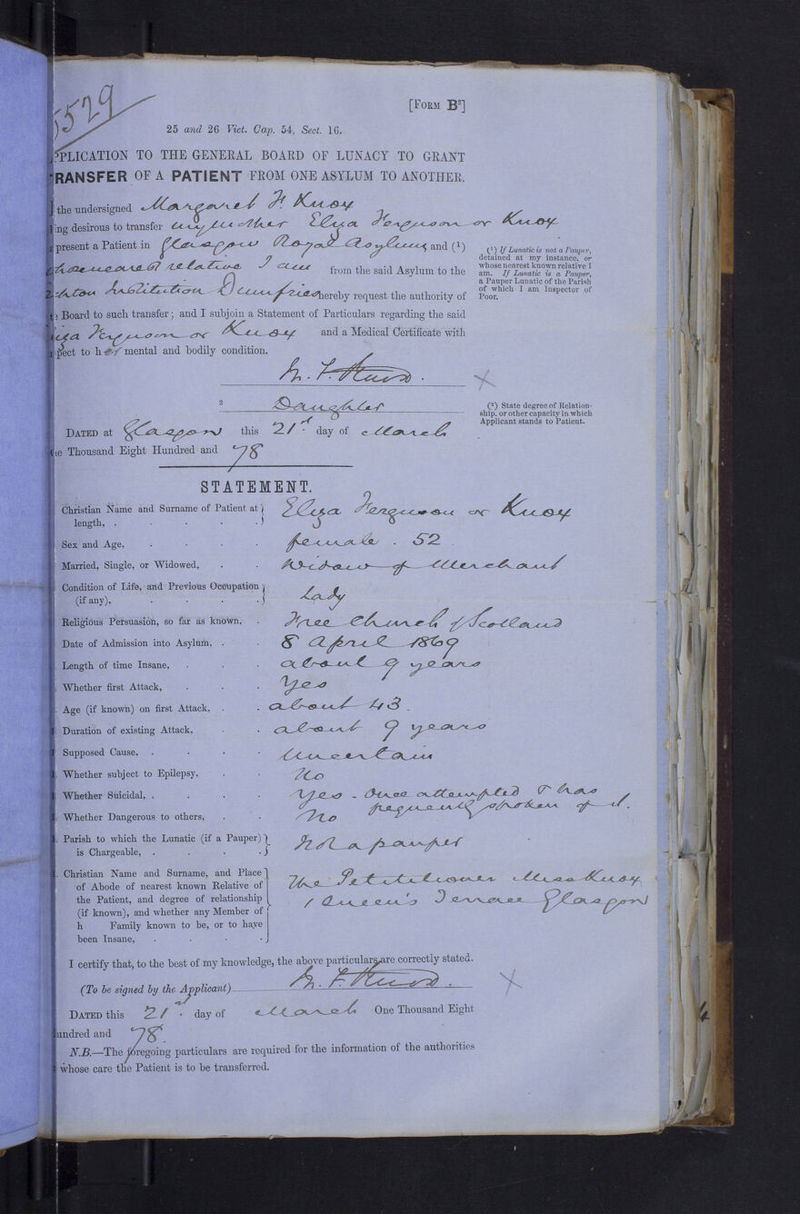 5529
[FORM B²]
25 and 26 Vict. Cap. 54, Sect. 16.
PPLICATION TO THE GENERAL BOARD OF LUNACY TO GRANT
RANSFER OF A PATIENT FROM ONE ASYLUM TO ANOTHER.
the undersigned Margaret F. Knox
ing desirous to transfer my mother Eliza Ferguson or Knox
present a Patient in Glasgow Royal Asylum and (¹)
whose nearest relative I am from the said Asylum to the
Institution Dumfries hereby request the authority of
Board to such transfer; and I subjoin a Statement of Particulars regarding the said
Ferguson or Knox and a Medical Certificate with
pect to her mental and bodily condition.
(¹) If Lunatic is not a Pauper,
detained at my instance, or
whose nearest known relative I
am. If Lunatic is a Pauper,
a Pauper Lunatic of the Parish
of which I am Inspector of
Poor.
M. F. Knox. X
² Daughter
(²) State degree of Relation-
ship, or other capacity in which
Applicant stands to Patient.
DATED at Glasgow this 21st day of March
Thousand Eight Hundred and 78
STATEMENT.
Christian Name and Surname of Patient at length, . Eliza Ferguson or Knox
Sex and Age, female . 52
Married, Single, or Widowed, Widow of Merchant
Condition of Life, and Previous Occupation (if any), Lady
Religious Persuasion, so far as known, Free Church of Scotland
Date of Admission into Asylum, 8 April 1869
Length of time Insane, about 9 years
Whether first Attack, Yes
Age (if known) on first Attack, about 43.
Duration of existing Attack, about 9 years
Supposed Cause, Uncertain
Whether subject to Epilepsy, No
Whether Suicidal, Yes - Once attempted & has frequently spoken of it.
Whether Dangerous to others, No
Parish to which the Lunatic (if a Pauper) is Chargeable, Not a pauper
Christian Name and Surname, and Place
of Abode of nearest known Relative of
the Patient, and degree of relationship
(if known), and whether any Member of
h Family known to be, or to have
been Insane,
The Petitioner Miss Knox
1 Queen's Terrace Glasgow
I certify that, to the best of my knowledge, the above particulars are correctly stated.
(To be signed by the Applicant) M. F. Knox. X
DATED this 21st day of March One Thousand Eight
undred and 78.
N.B.—The foregoing particulars are required for the information of the authorities
whose care the Patient is to be transferred.